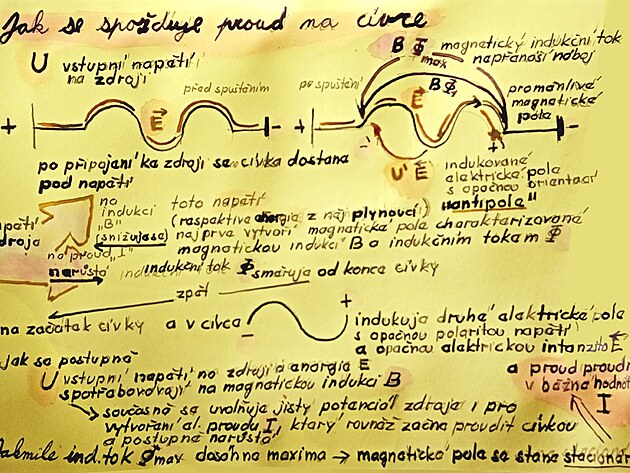 Jak se spožďuje proud na cívce
U vstupní napětí
na zdroji
před spuštěním
po spuštění
B Φmax magnetický indukční tok
nepřenáší náboj
BΦ1
proměnlivé
magnetické
pole
E
E
+
-
+
-
-
+
U' E
indukované
elektrické pole
s opačnou orientací
"antipole"
po připojení ke zdroji se cívka dostane
pod napětí
no
indukci
"B"
(snižuje se)
no proud "I"
narůstá
toto napětí
(respektive energie z něj plynoucí)
nejprve vytvoří magnetické pole charakterizované
magnetickou indukcí B a indukčním tokem Φ
indukční tok Φ směřuje od konce cívky
zpět
na začátek cívky a v cívce
-
+
indukuje druhé elektrické pole
s opačnou polaritou napětí
a opačnou elektrickou intenzitou E
jak se postupně
U vstupní napětí na zdroji a energie E
spotřebovávají na magnetickou indukci B
a proud proudí
v běžné hodnotě
I
současně se uvolňuje jistý potenciál zdroje i pro
vytvoření el. proudu I, který rovněž začne proudit cívkou
a postupně narůstá
Jakmile ind. tok Φmax dosáhne maxima → magnetické pole se stane stacionár